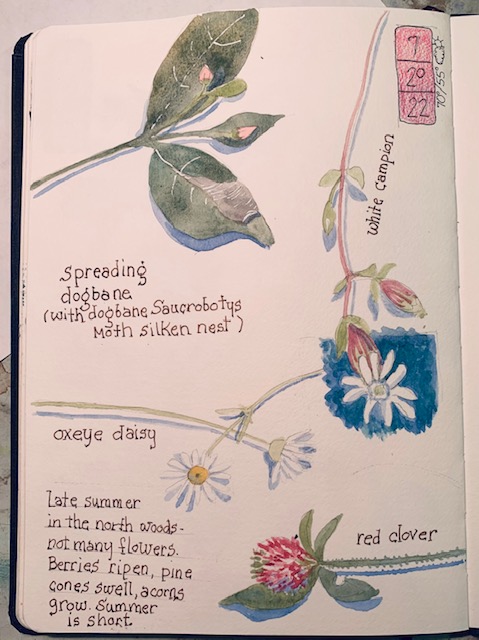 7
20
22
70°/55°
white campion
spreading
dogbane
(with dogbane Saucrobotys
Moth silken nest)
oxeye daisy
Late summer
in the north woods-
not many flowers.
Berries ripen, pine
cones swell, acorns
grow. Summer
is short.
red clover